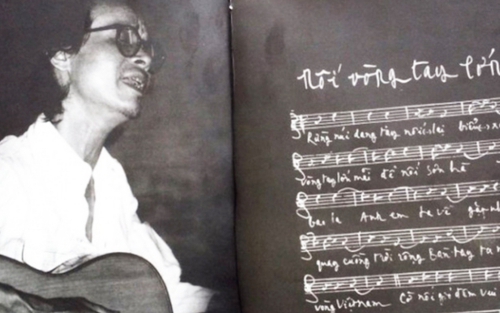 nối vòng tay lớn
Rừng núi dang tay nối lại biển x
vòng tay lớn mãi để nối sơn hà
bao la Anh em ta về gặp nh
quay cuồng trời rộng Bàn tay ta n
vòng Việt Nam Cờ nối gió đêm vui